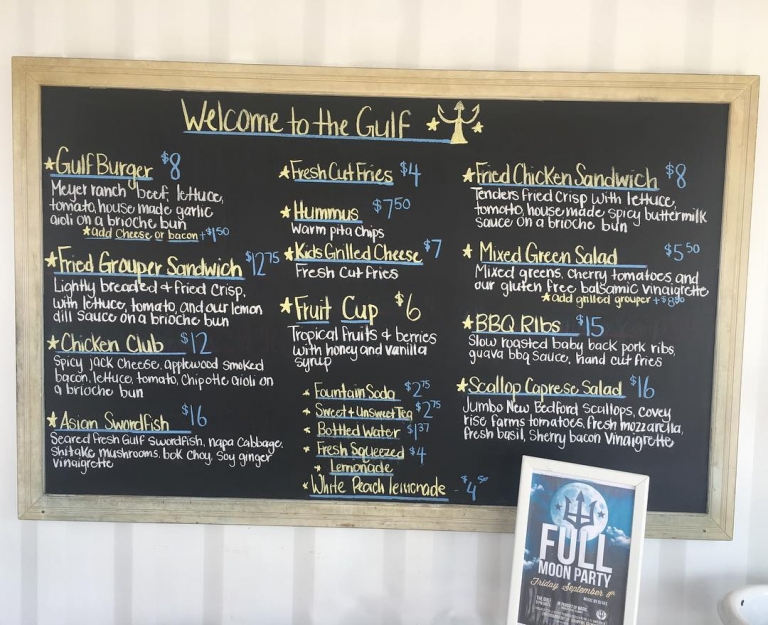 Welcome to the Gulf
Gulf Burger $8
Meyer ranch beef, lettuce,
tomato, house made garlic
aioli on a brioche bun
*add Cheese or bacon +$1.50
Fried Grouper Sandwich $12.75
Lightly breaded + fried crisp,
with lettuce, tomato, and our lemon
dill sauce on a brioche bun
Chicken Club $12
Spicy jack cheese, applewood smoked
bacon, lettuce, tomato, Chipotle aioli on
a brioche bun
Asian Swordfish $16
Seared fresh Gulf swordfish, napa Cabbage,
shitake mushrooms, bok choy, soy ginger
vinaigrette
Fresh Cut Fries $4
Hummus $7.50
Warm pita chips
Kids Grilled Cheese $7
Fresh Cut fries
Fruit Cup $6
Tropical fruits + berries
with honey and vanilla
syrup
Fountain Soda $2.75
Sweet + Unsweet Tea $2.75
Bottled Water $1.37
Fresh Squeezed $4
Lemonade
White Peach lemonade - $4.50
Fried Chicken Sandwich $8
Tenders fried crisp with lettuce,
tomato, house made spicy buttermilk
sauce on a brioche bun
Mixed Green Salad $5.50
Mixed greens, cherry tomatoes and
our gluten free balsamic vinaigrette
*add grilled grouper +
BBQ Ribs $15
Slow roasted baby back pork ribs,
guava bbq sauce, hand cut fries
Scallop Caprese Salad $16
Jumbo New Bedford scallops, covey
rise farms tomatoes, fresh mozzarella,
fresh basil, sherry bacon Vinaigrette
FULL
MOON PARTY
Friday September 8th